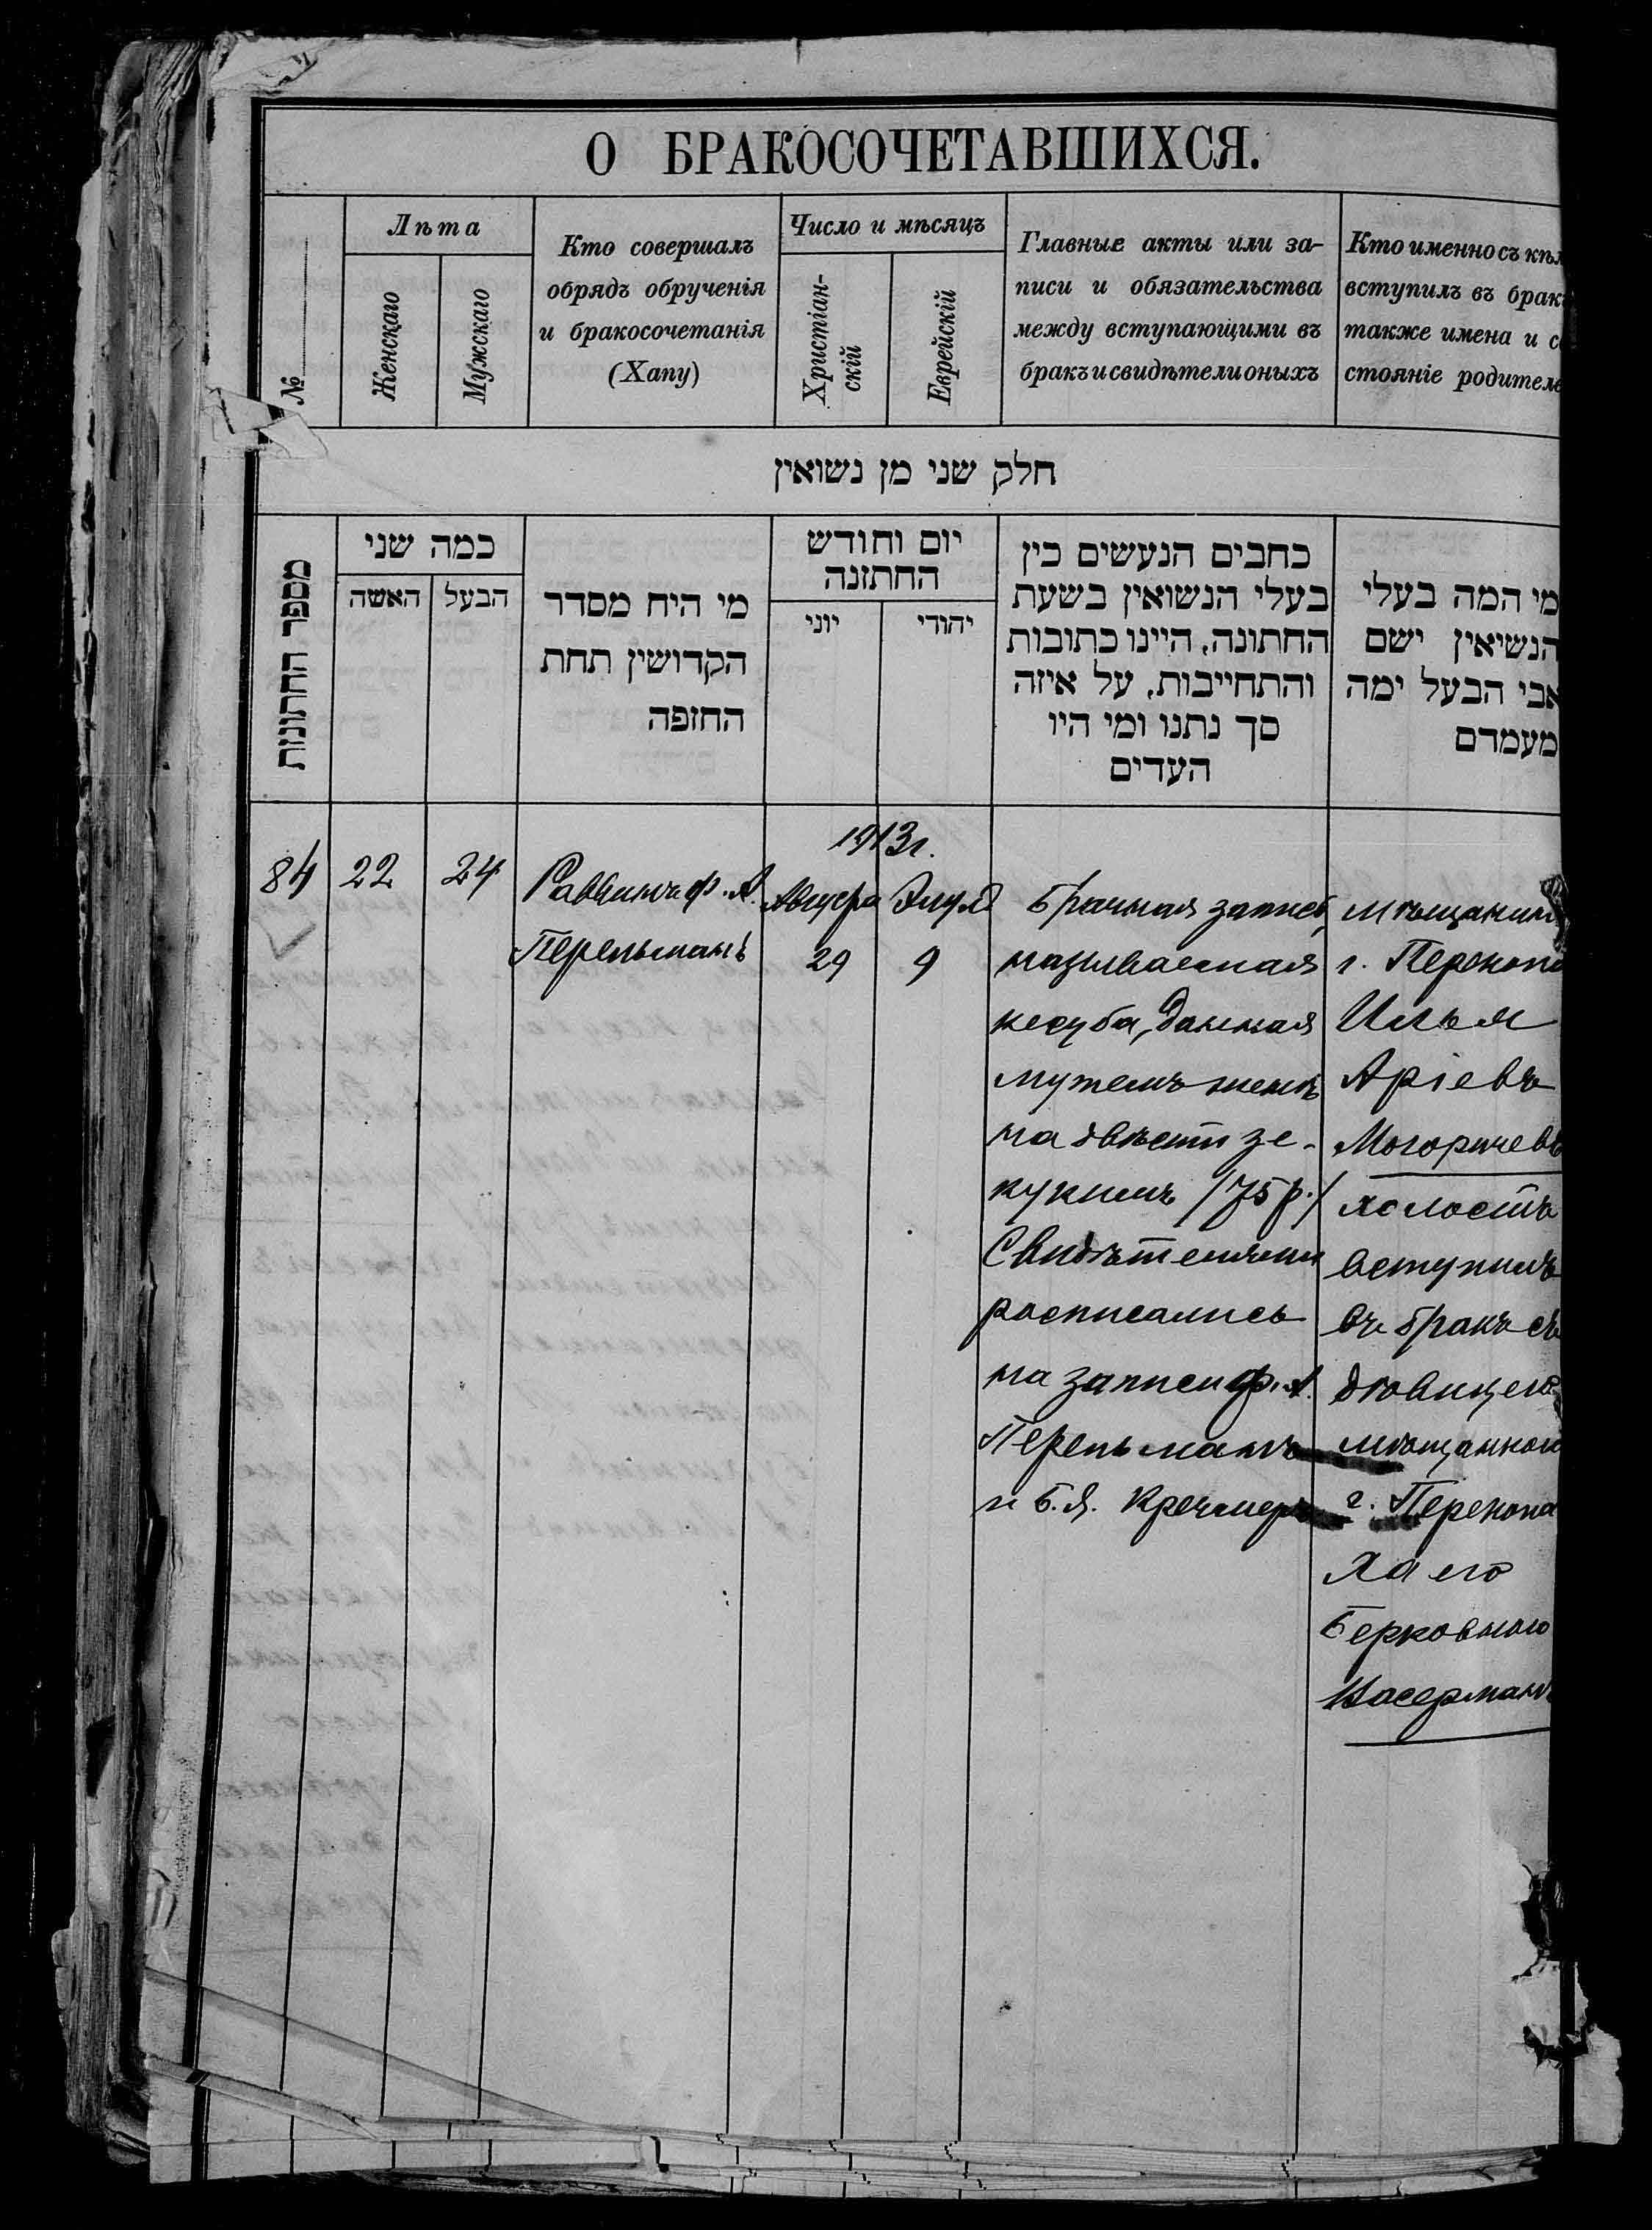 О БРАКОСОЧЕТАВШИХСЯ.
№
Лѣта
Женскаго
Мужскаго
Кто совершалъ
обрядъ обрученія
и бракосочетанія
(Хапу)
Число и мѣсяцъ
Христіан-
скій
Еврейскій
Главные акты или за-
писи и обязательства
между вступающими въ
бракъ и свидѣтели оныхъ
Кто именно съ кѣм
вступилъ въ бракъ
также имена и со
стояніе родителе
חלק שני מן נשואין
מספר החתונות
כמה שני
האשה
הבעל
מי היח מסדר
הקדושין תחת
החזפה
יום וחודש
החתזנה
יוני
יהודי
כחבים הנעשים כין
בעלי הנשואין בשעת
החתונה, היינו כתובות
והתחייבות, על איזה
סך נתנו ומי היו
העדים
מי המה בעלי
הנשיאין ישם
אבי הבעל ימה
מעמדם
84
22
24
Раввинъ Ф. А.
Перельманъ
1913 г.
Августа
29
Элул
9
Брачная запись
называемая
кесуба, данная
мужемъ женѣ
на двѣсти зе-
кукимъ /75 р./
Свидѣтелями
расписались
на записи Ф. А.
Перельманъ
и Б. Я. Кречмеръ
мѣщанинъ
г. Перекопа
Илья
Аріевъ
Могоричевъ
холостъ
вступилъ
въ бракъ съ
дѣвицею
мѣщанкою
г. Перекопа
Хаею
Берковною
Васерманъ